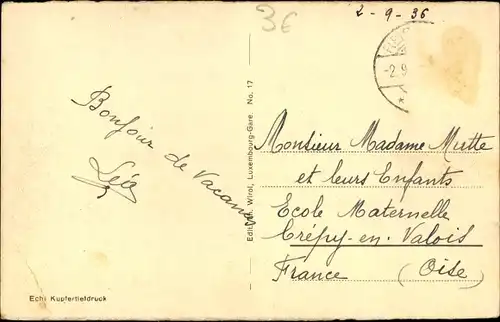 3€
2-9-36
-2.9
Bonjour de Vacances
Léa
Edit. Wirol, Luxembourg-Gare. No. 17
Monsieur Madame Mutte
et leurs Enfants
Ecole Maternelle
Crépy-en-Valois
France (Oise)
Echt Kupfertiefdruck